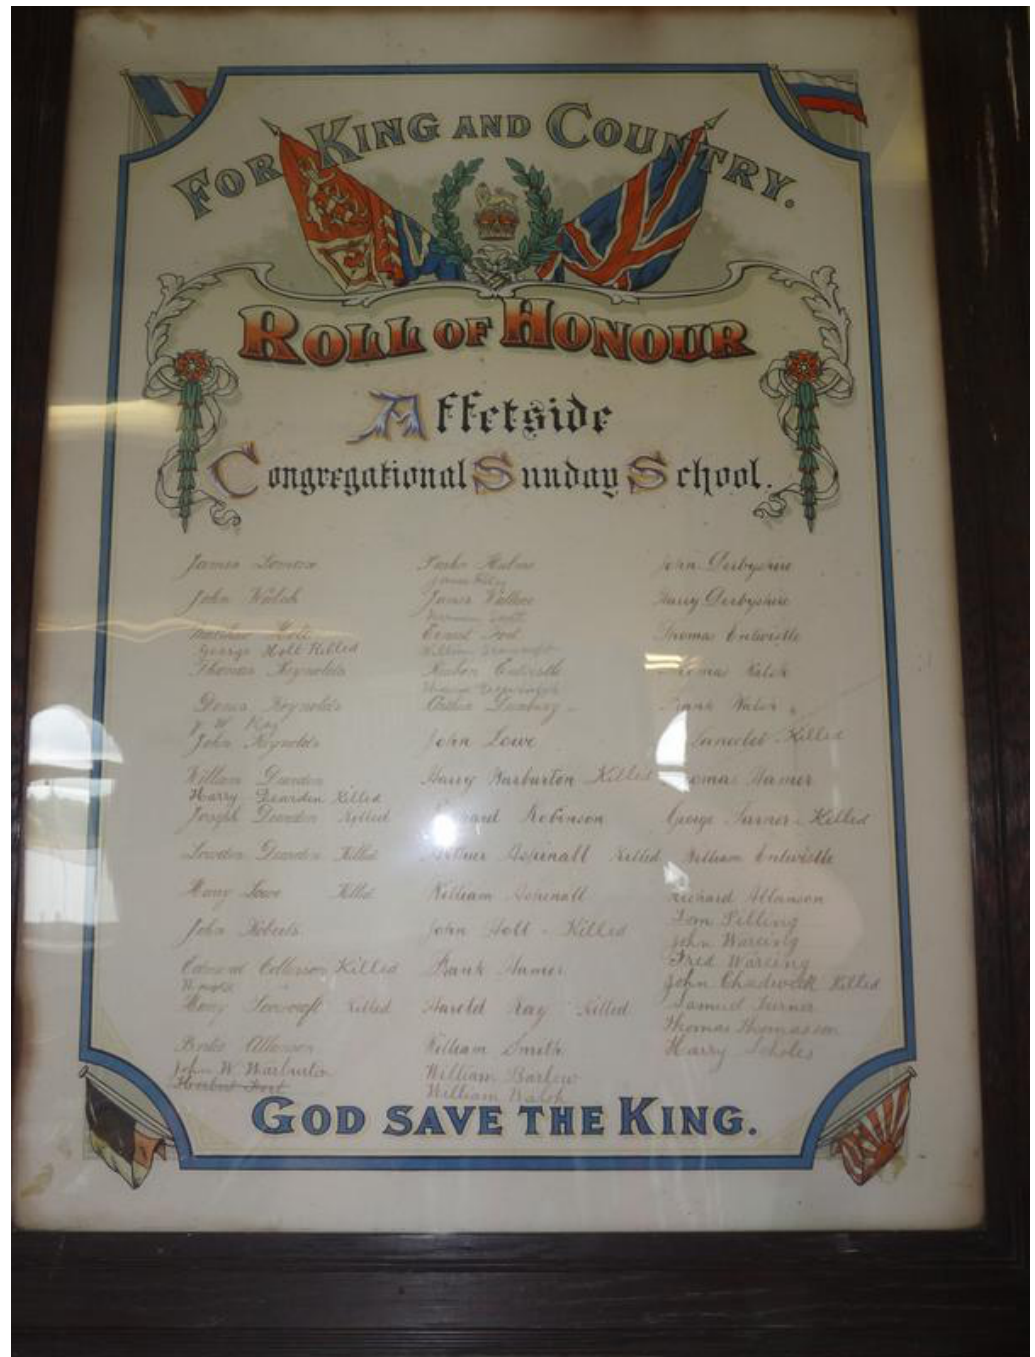 FOR KING AND COUNTRY.
ROLL OF HONOUR
Affetside
Congregational Sunday School.
James Lomax
John Walsh
Holt
George Holt Killed
Thomas Reynolds
Denis Reynolds
J. W. Kay
John Reynolds
William Dearden
Harry Dearden Killed
Joseph Dearden Killed
Dearden Killed
Harry Lowe Killed
John Roberts
Killed
Harry Killed
John W. Warburton
Hulme
James
James Wallace
Ernest
William
Entwistle
John Lowe
Harry Warburton Killed
Robinson
Arthur Aspinall Killed
William Aspinall
John Holt - Killed
Frank Hamer
Harold Kay Killed
William Smith
William Barlow
William Walsh
John Derbyshire
Harry Derbyshire
Thomas Entwistle
Thomas Walsh
Frank Walsh
Killed
Thomas Hamer
George Turner - Killed
William Entwistle
Richard Allanson
Tom Pilling
John Wareing
Fred Wareing
John Chadwick Killed
Samuel Turner
Thomas Thomasson
Harry Scholes
GOD SAVE THE KING.